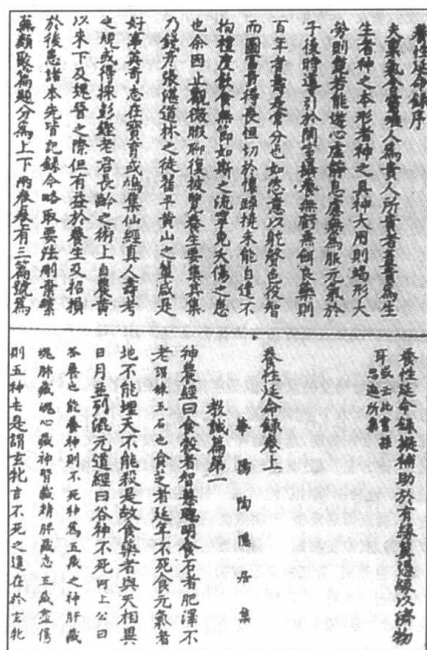 養性延命錄序
夫稟氣含靈唯人為貴人所貴者蓋貴為生
生者神之本形者神之具神大用則竭形大
勞則斃若能遊心虛靜息慮無為服元氣於
子後時導引於閑室攝養無虧兼餌良藥則
百年耆壽是常分也如恣意以耽聲色役智
而圖富貴得喪恒切於懷躁撓未能自遣不
拘禮度飲食無節如斯之流寧免夭傷之患
也余因止觀微暇聊復披覽養生要集其集
乃錢彥張湛道林之徒翟平黃山之輩咸是
好事英奇志在寶育或鳩集仙經真人壽考
之規或得採彭鏗老君長齡之術上自農黃
以來下及魏晉之際但有益於養生及招損
於後患諸本先皆記錄今略取要法刪棄繁
蕪類聚篇題分為上下兩卷卷有三篇號為
養性延命錄擬補助於有緣冀憑緣以濟物
耳或云此書孫思邈所集
養性延命錄卷上
華陽陶隱居集
教誡篇第一
神農經曰食穀者智慧聰明食石者肥澤不
老謂鍊五石也食芝者延年不死食元氣者
地不能埋天不能殺是故食藥者與天相畢
日月並列混元道經曰谷神不死河上公曰
谷養也能養神則不死神為五藏之神肝藏
魂肺藏魄心藏神腎藏精脾藏志五藏盡傷
則五神去是謂玄牝言不死之道在於玄牝